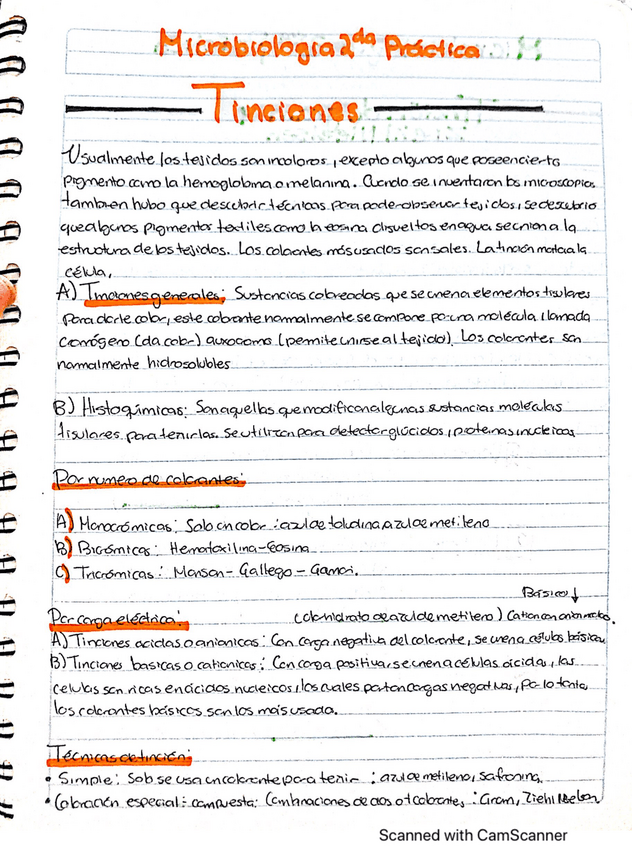 Microbiologia 2da Práctica
Tinciones
Usualmente los tejidos son incoloros, excepto algunos que poseen cierto
pigmento como la hemoglobina o melanina. Cuando se inventaron los microscopios
tambien hubo que descubrir técnicas para poder observar tejidos, se descubrio
que algunos pigmentos textiles como la eosina disueltos en agua se union a la
estructura de los tejidos. Los colorantes más usados son sales. La tinción mata a la
célula.
A) Tinciones generales: Sustancias coloreadas que se unen a elementos tisulares
para darle color, este colorante normalmente se compone por una molécula llamada
cromógeno (da color) auxocomo (permite unirse al tejido). Los colorantes son
normalmente hidrosolubles
B) Histoquímicas: Son aquellas que modifican algunas sustancias moléculas
tisulares para teñirlas. Se utilizan para detectar glúcidos, proteinas nucleicas
Por numero de colorantes:
A) Monocrómicas: Solo un color: azul de toluidina, azul de metileno
B) Bicrómicas: Hematoxilina-Eosina
C) Tricrómicas: Masson-Gallego-Gamori.
Básico ↓
Por carga eléctrica: (clorhidrato de azul de metileno) Cation con anion
A) Tinciones acidas o anionicas: Con carga negativa del colorante, se unen a células básicas
B) Tinciones basicas o cationicas: Con carga positiva, se unen a células acidas, las
celulas son ricas en ácidos nucleicos, los cuales portan cargas negativas, por lo tanto,
los colorantes básicos son los más usada.
Técnicas de tinción:
• Simple: Solo se usa un colorante para teñir: azul de metileno, safranina.
• Coloración especial: compuesta: Combinaciones de dos o + colorantes: Gram, Ziehl Neelsen
Scanned with CamScanner